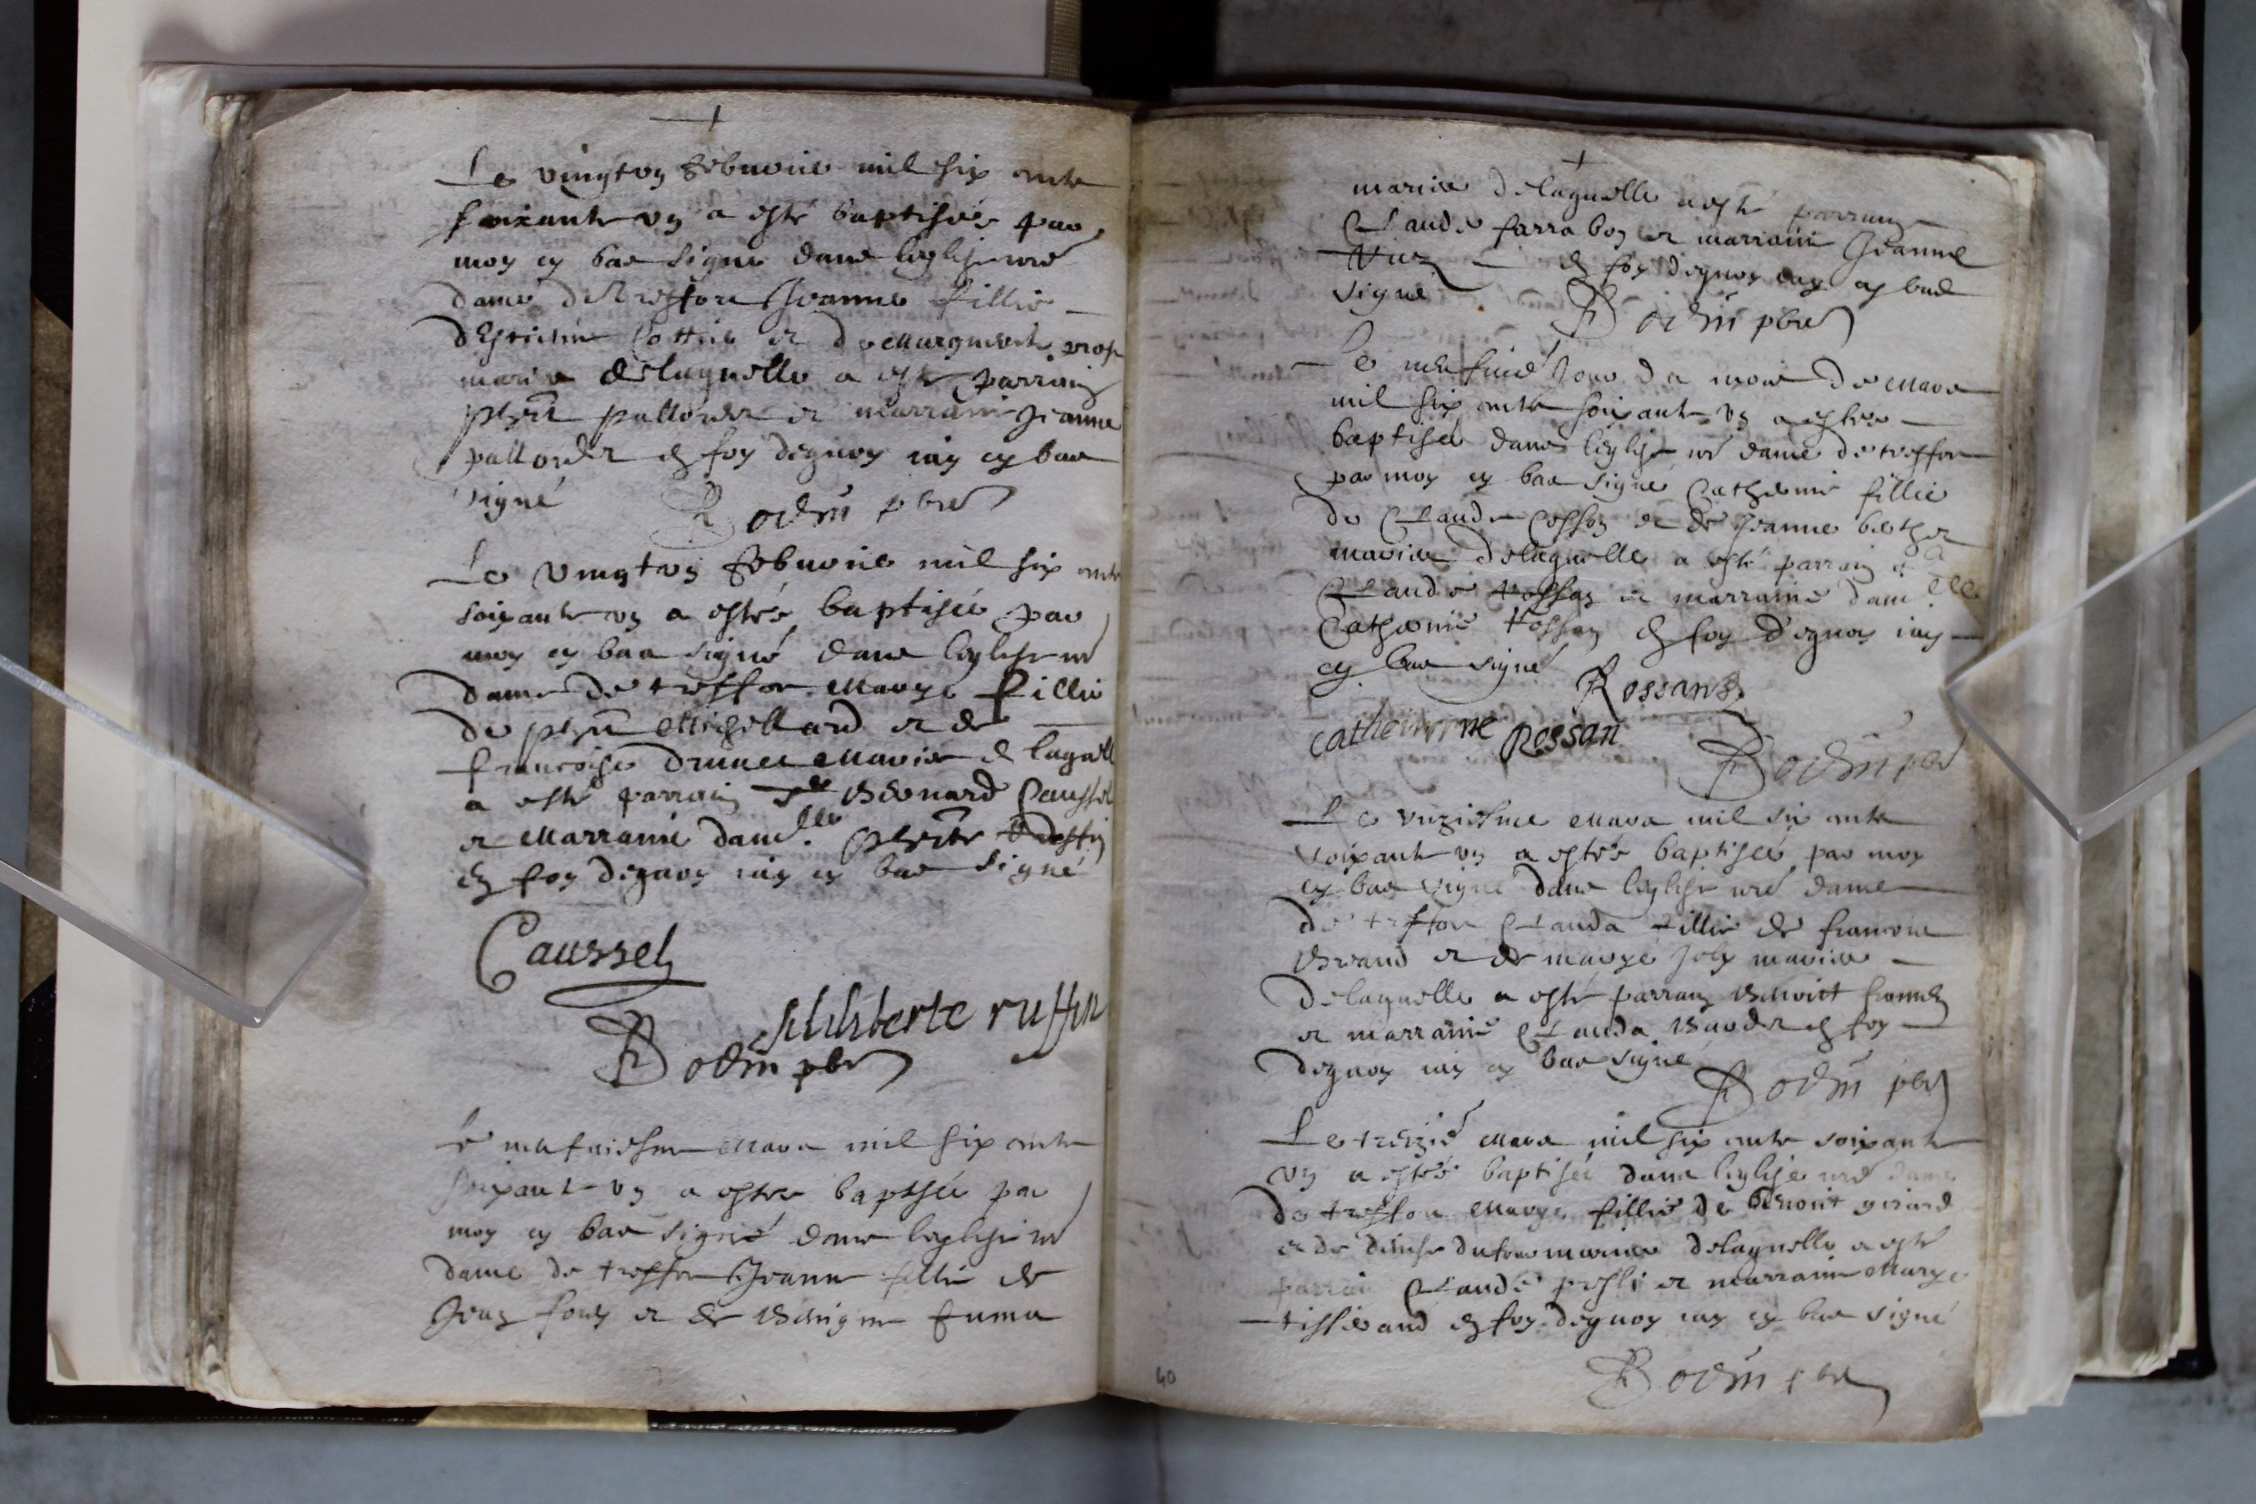 Le vingt un febvrier mil six cents
soixante un a esté baptisée par
moy cy bas signé dans leglise nre
dame de Treffort Jeanne fillie
destienne Cottin et de Marguerite
mariés de laquelle a esté parrain
phil pallordet et marraine Jeanne
pallordet en foy dequoy iay cy bas
signé Bodin pbre
Le vingt un febvrier mil six cents
soixante un a estée baptisée par
moy cy bas signé dans leglise nre
dame de treffort Marye fillie
de phil Michellard et de
francoise druet Mariés de laquelle
a esté parrain Bernard Caussel
et Marraine dam.lle phrte
en foy dequoy iay cy bas signé
Caussel
philiberte ruffin
Bodin pbre
Le neufviesme Mars mil six cents
soixante un a estée baptisée par
moy cy bas signé dans leglise nre
dame de treffort Jeanne fillie de
Jean et de Benigne
mariés de laquelle a esté parrain
Claude farrabos et marraine Jeanne
en foy dequoy iay cy bas
signé Bodin pbre
Le neufvié Jour du mois de Mars
mil six cents soixante un a estée
baptisée dans leglise nre dame de treffort
par moy cy bas signé Catherine fillie
de Claude et de Jeanne
mariés de laquelle a esté parrain
Claude Rossan et marraine dam.elle
Catherine Rossan en foy dequoy iay
cy bas signé Rossans
catheinrine Rossan
Bodin pbre
Le unziesme Mars mil six cents
soixante un a estée baptisée par moy
cy bas signé dans leglise nre dame
de treffort Clauda fillie de francois
Brand et de marye Joly mariés
de laquelle a esté parrain Benoict
et marraine Clauda en foy
dequoy iay cy bas signé
Bodin pbre
Le treizié Mars mil six cents soixante
un a estée baptisée dans leglise nre dame
de treffort Marye fillie de Benoit girard
et de denise dufour mariés de laquelle a esté
parrain Claude et marraine Marye
tissieand en foy dequoy iay cy bas signé
Bodin pbre
40